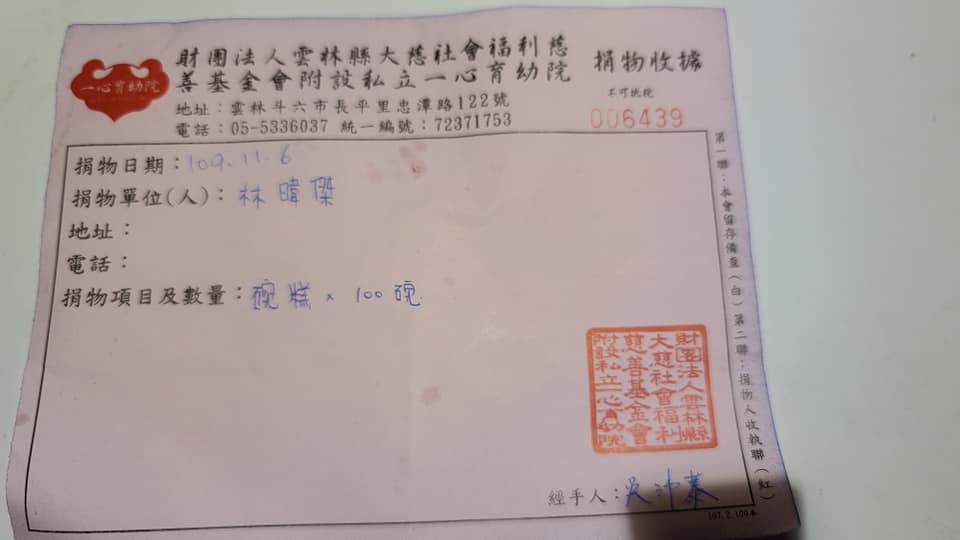 一心育幼院
財團法人雲林縣大慈社會福利慈
善基金會附設私立一心育幼院
捐物收據
地址：雲林斗六市長平里忠潭路122號
不可抵稅
電話：05-5336037 統一編號：72371753
006439
捐物日期：109.11.6
捐物單位(人)：林暐傑
地址：
電話：
捐物項目及數量：碗糕 x 100碗
第一聯：本會留存備查(白)第二聯：捐物人收執聯(紅)
財團法人雲林縣
大慈社會福利
慈善基金會
附設私立一心育幼院
經手人：吳沛蓁
107.2.100本